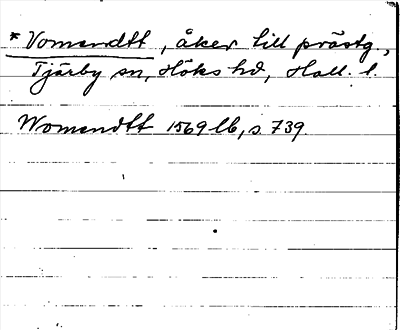 * Vomendtt, åker till prästg.,
Tjärby sn, Höks hd, Hall. l.
Womendtt 1569 lb, s. 739